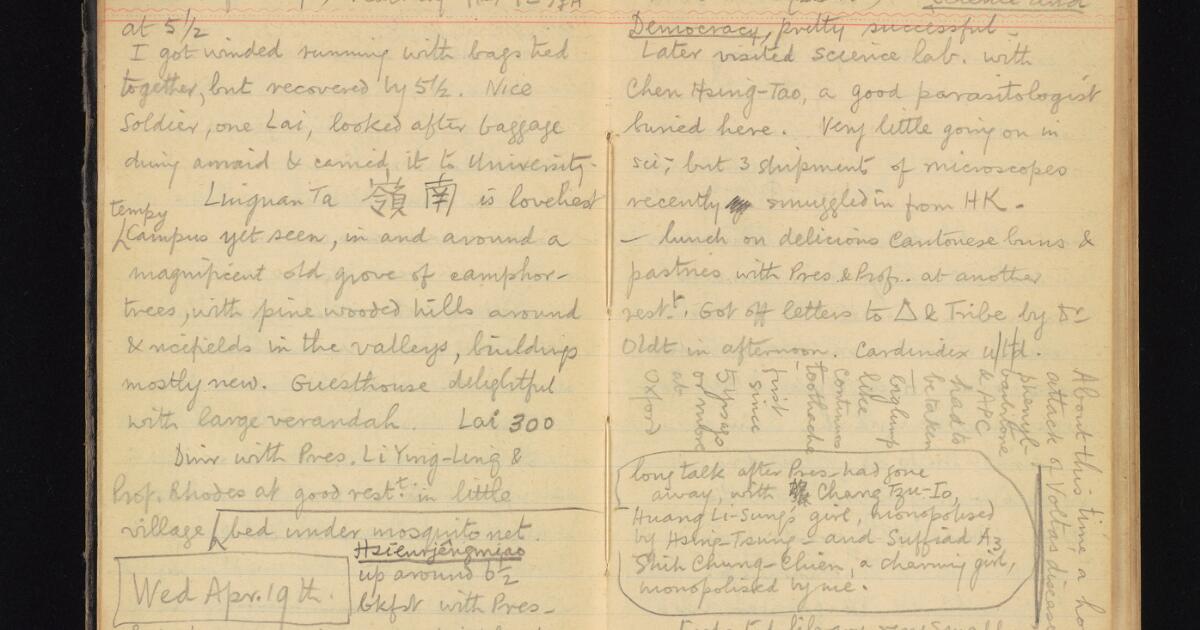 at 5½
I got winded running with bags tied
together, but recovered by 5½. Nice
Soldier, one Lai, looked after baggage
during airraid & carried it to University.
LingnanTa 嶺南 is loveliest
tempy
Campus yet seen, in and around a
magnificent old grove of camphor-
trees, with pine wooded hills around
& ricefields in the valleys, buildings
mostly new. Guesthouse delightful
with large verandah. Lai 300
Dinr with Pres. Li Ying-Ling &
Prof. Rhodes at good restt. in little
village bed under mosquito net.
Hsienjengmiao
Wed Apr. 19th.
up around 6½
bkfst with Pres-
Science and
Democracy, pretty successful.
Later visited science lab. with
Chen Hsing-Tao, a good parasitologist
buried here. Very little going on in
sci; but 3 shipment of microscopes
recently smuggled in from HK.
— lunch on delicious Cantonese buns &
pastries with Pres. & Prof. at another
restt. Got off letters to Δ & Tribe by Dr
Oldt in afternoon. Cardindex u/t/d.
About this time a
attack of Volta's disease
phenyl-
barbitone
& APC
had to
be taken
like
continuous
toothache
first
since
5 years
or more
at
Oxford
long talk after Pres. had gone
away, with Chang Tzu-Io,
Huang Li-Sung's girl, monopolised
by Hsing-Tsung - and Suffiad Am.
Shih Chung-Chien, a charming girl,
monopolised by me.